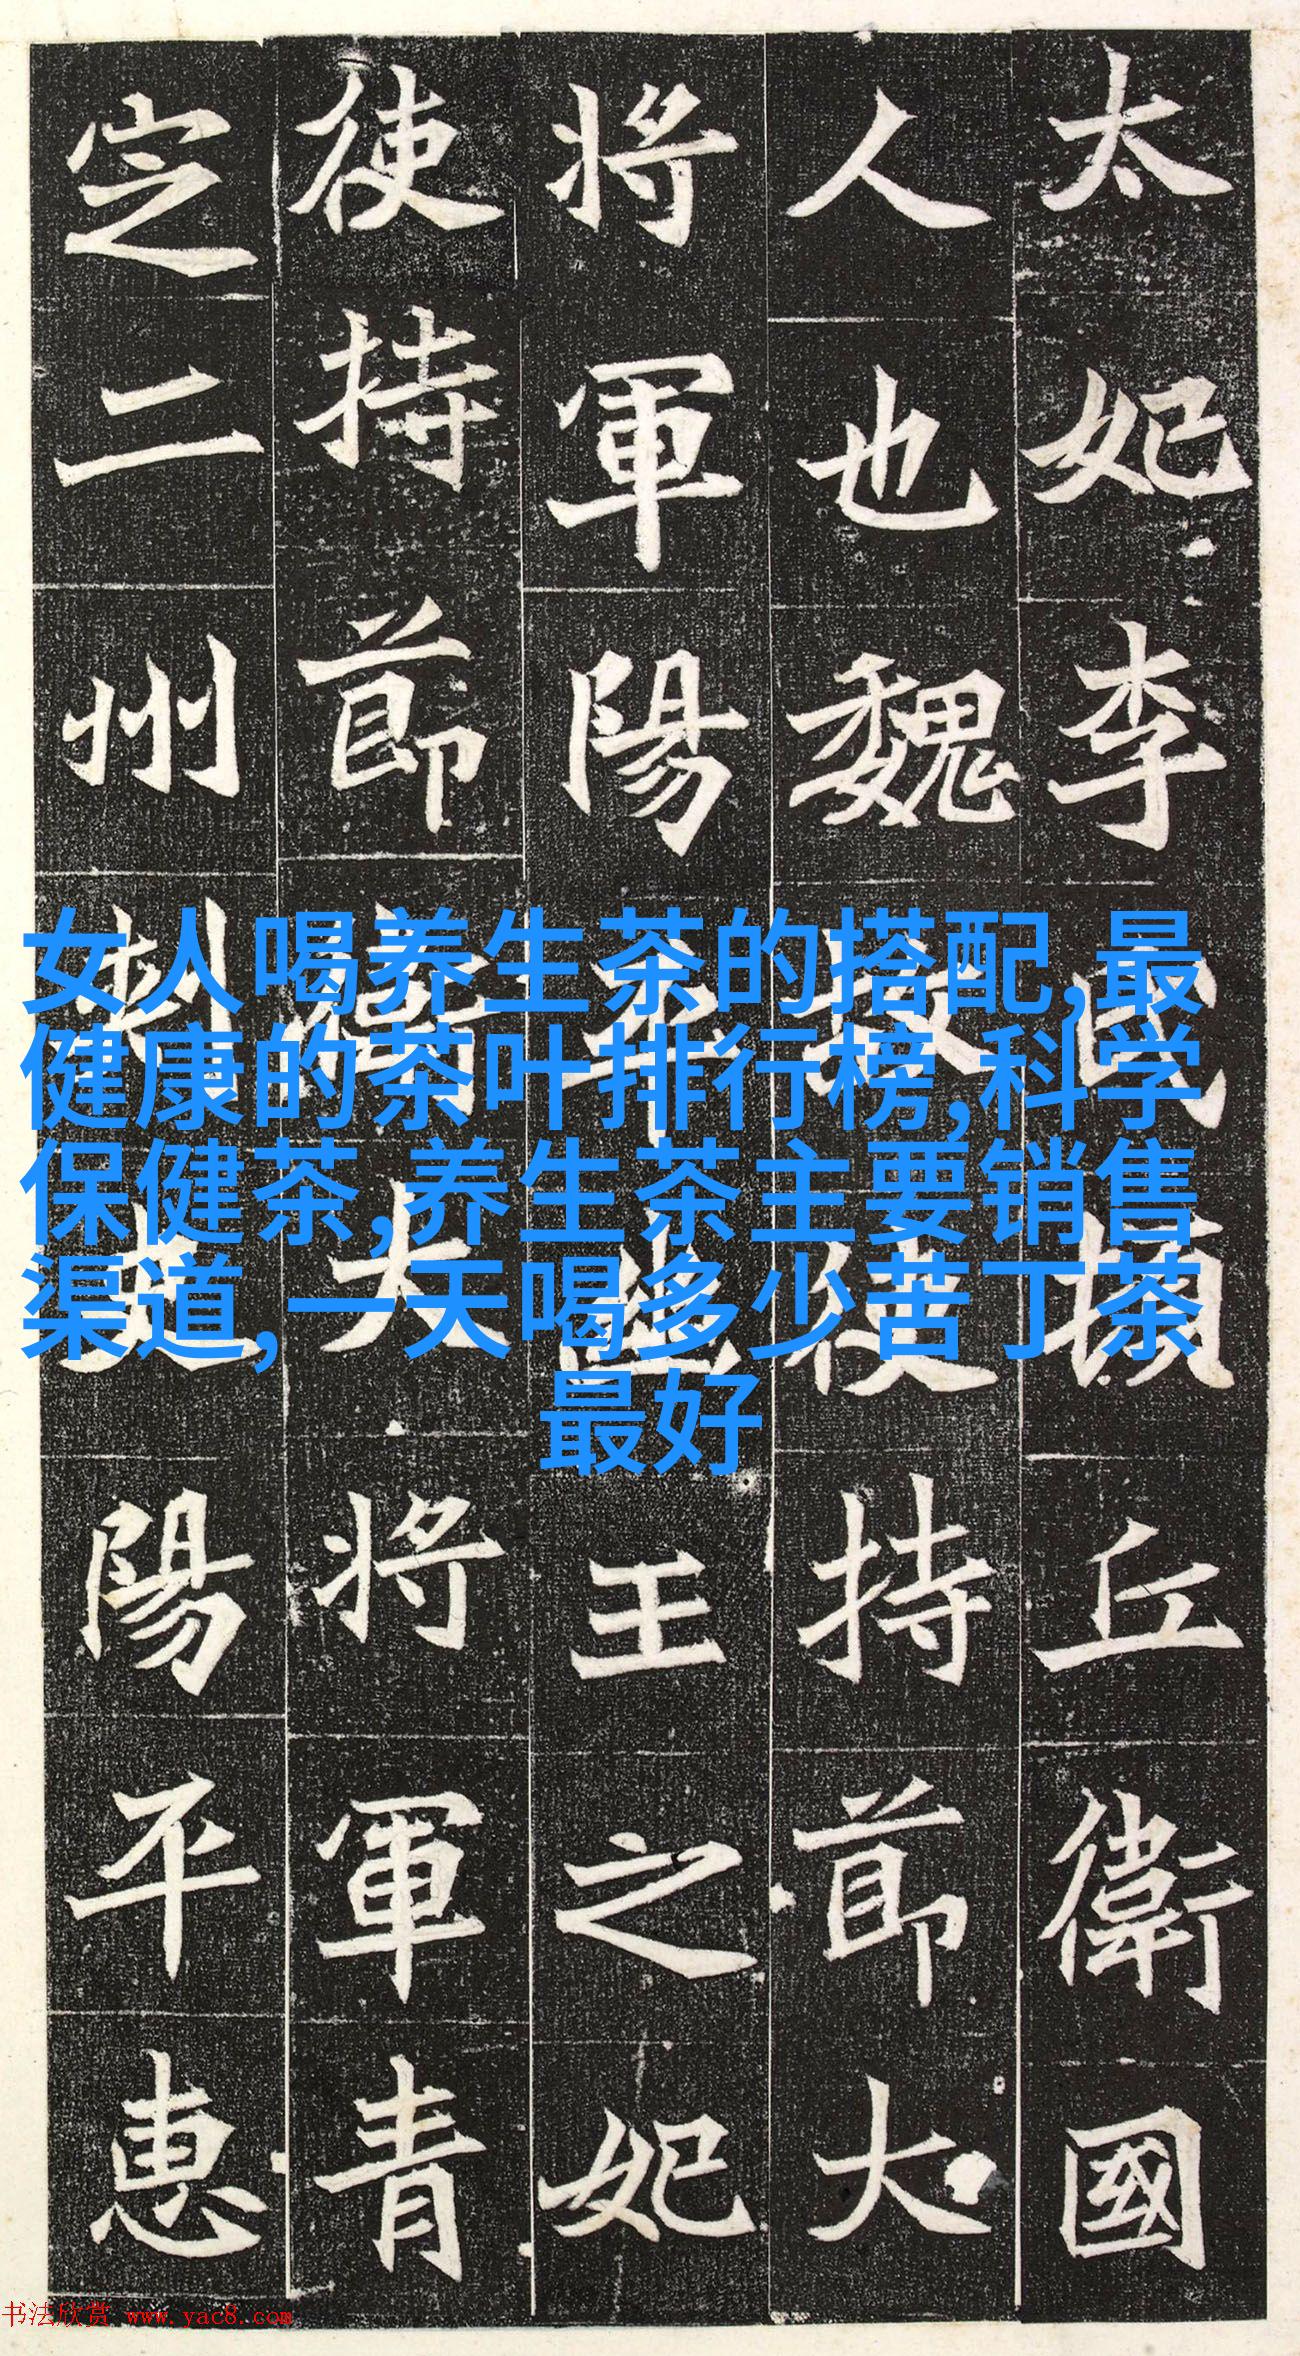 太妃李氏頓丘衛國
人也魏故使持節大
將軍陽平幽王之妃
使持節衛大將軍青
定二州刺史陽平惠
女人喝养生茶的搭配,最
健康的茶叶排行榜,科学
保健茶,养生茶主要销售
渠道,一天喝多少苦丁茶
最好
书法欣赏 www.yac8.com